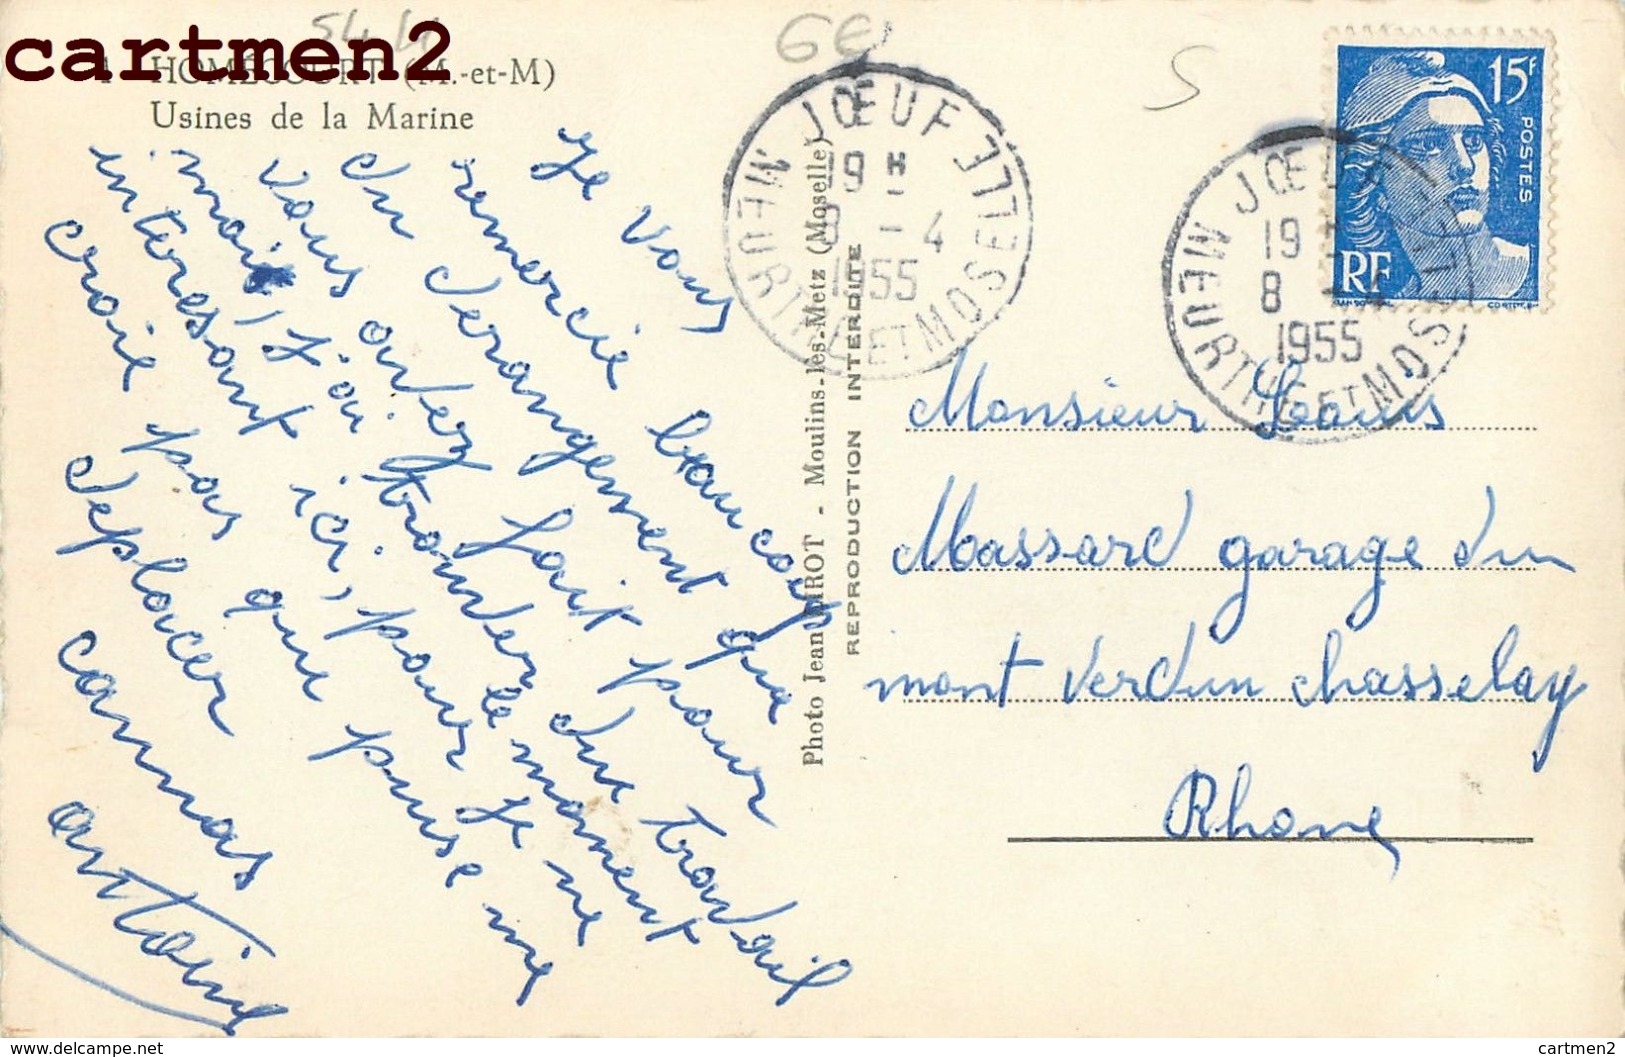 cartmen2
54
GE
S
HOMÉCOURT (M.-et-M)
Usines de la Marine
Je vous
remercie beaucoup
du derangement que
vous avez fait pour
moi, j'ai trouver du travail
interessant ici, pour le moment
croie pas que puise me
deplacer
cannas
antoine
pour je ne
JŒUF
19 H
9 - 4
1955
MEURTHE ET MOSELLE
JŒUF
19
8
1955
MEURTHE ET MOSELLE
15F
POSTES
RF
Photo Jean PIROT - Moulins-les-Metz (Moselle)
REPRODUCTION INTERDITE
Monsieur Louis
Massard garage du
mont verdun chasselay
Rhone
cartmen2
https://www.delcampe.net
cartmen2